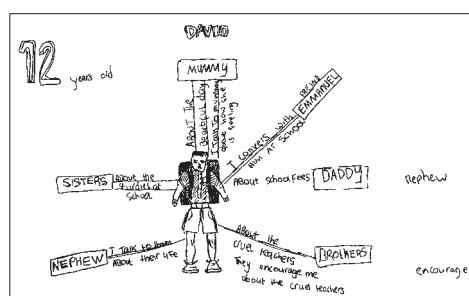 DAVID
12 years old
MUMMY
ABOUT The
Beautiful day
I Talk To mummy
about how she
is feeling
FRIEND
EMMANUEL
I convers with
Him AT School
SISTERS
About the
studies at
School
About school fees
DADDY
nephew
NEPHEW
I Talk to them
About their life
About the
cruel teachers
They encourage me
about the cruel teachers
BROTHERS
encourage